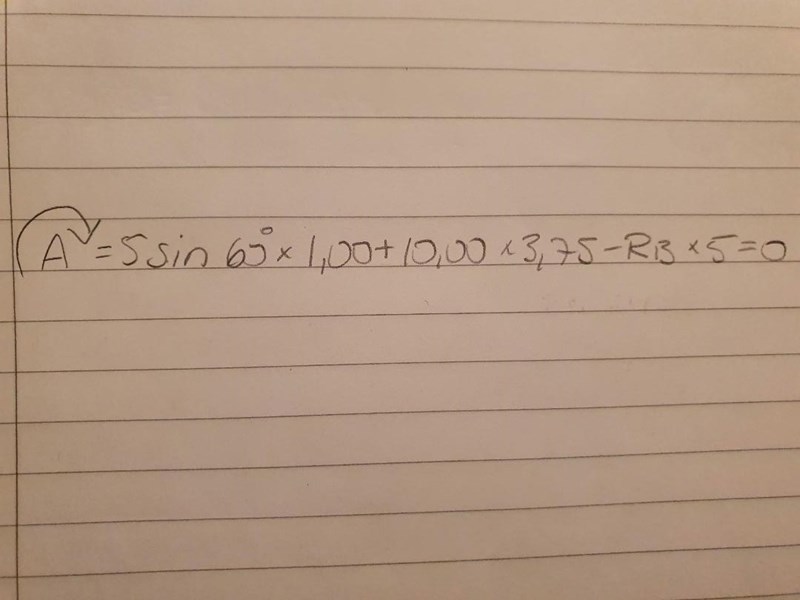 A = 5 sin 60° × 1,00 + 10,00 × 3,75 - RB × 5 = 0